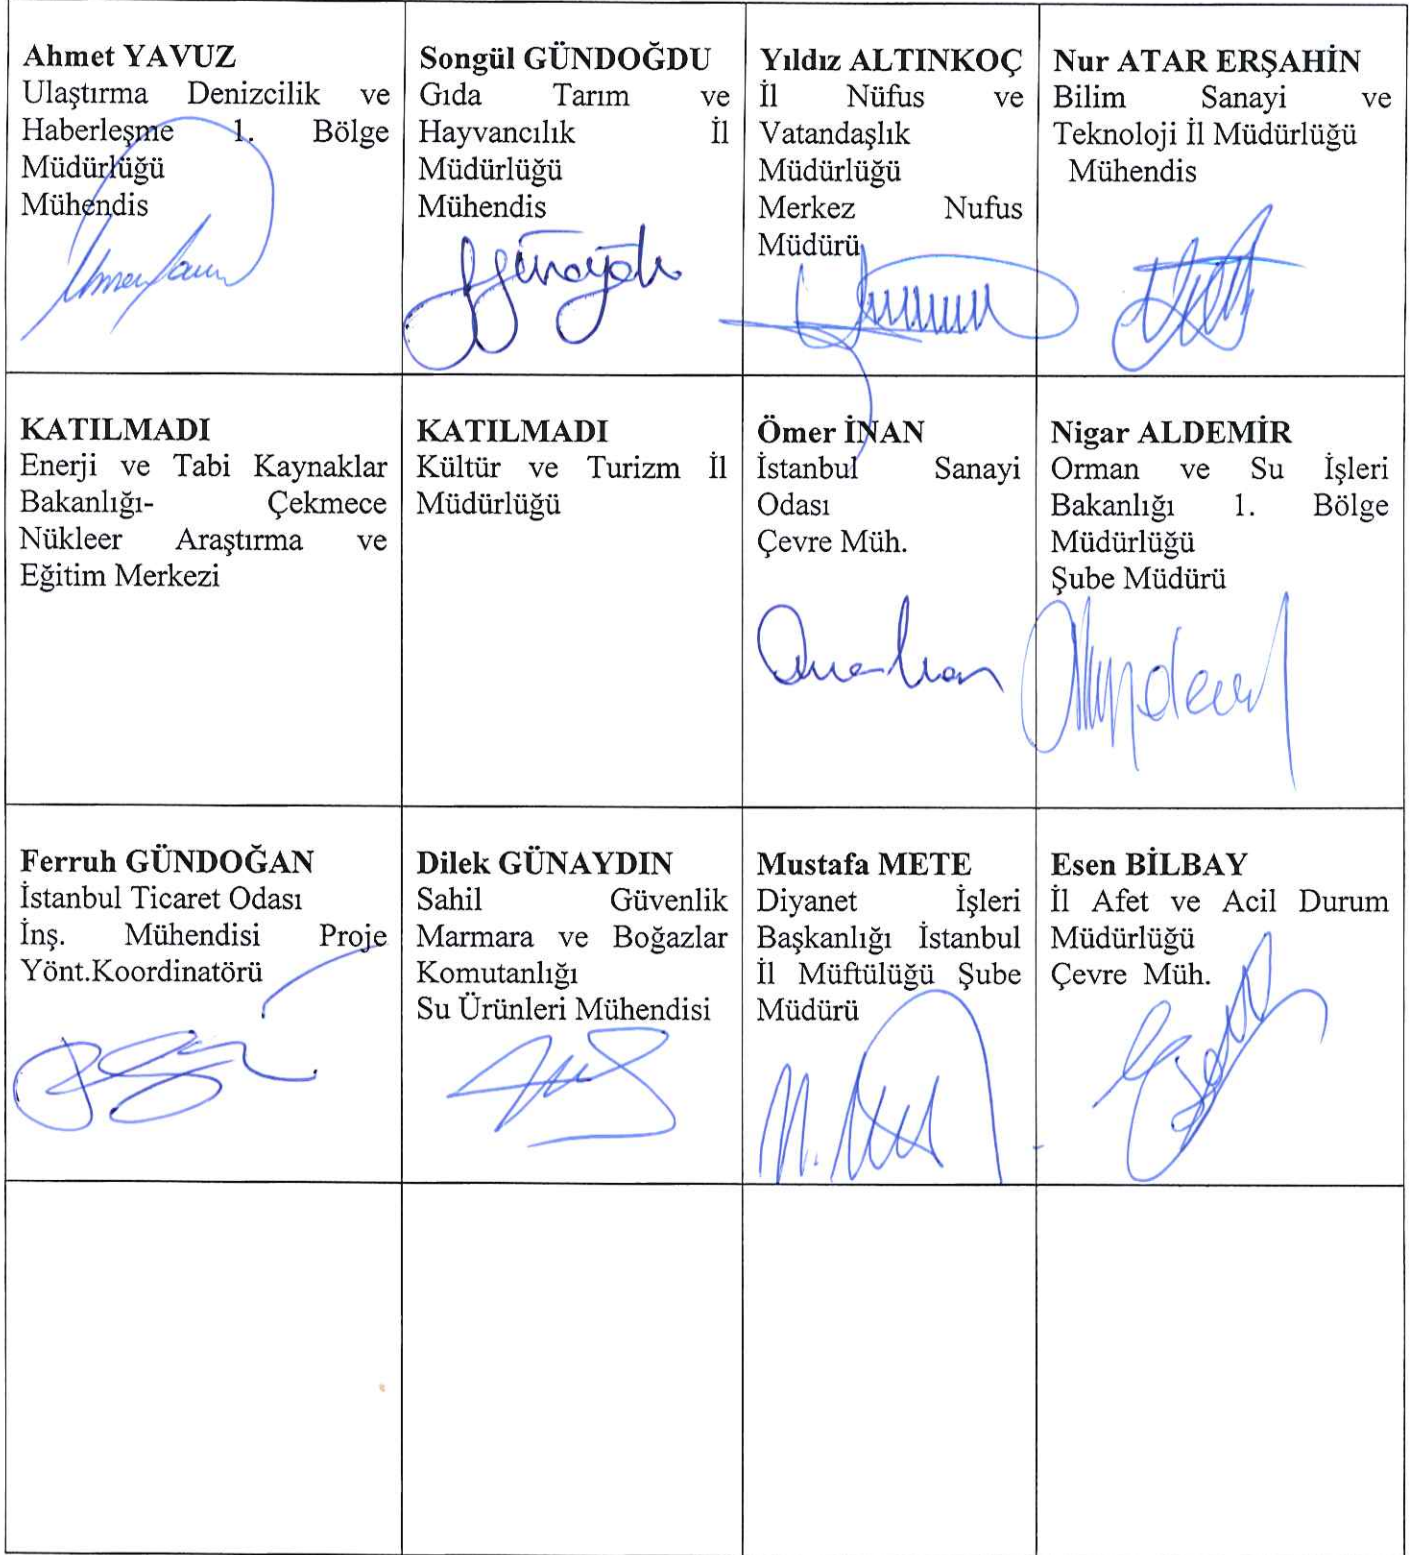 Ahmet YAVUZ
Ulaştırma Denizcilik ve
Haberleşme 1. Bölge
Müdürlüğü
Mühendis
Songül GÜNDOĞDU
Gıda Tarım ve
Hayvancılık İl
Müdürlüğü
Mühendis
Yıldız ALTINKOÇ
İl Nüfus ve
Vatandaşlık
Müdürlüğü
Merkez Nufus
Müdürü
Nur ATAR ERŞAHİN
Bilim Sanayi ve
Teknoloji İl Müdürlüğü
Mühendis
KATILMADI
Enerji ve Tabi Kaynaklar
Bakanlığı- Çekmece
Nükleer Araştırma ve
Eğitim Merkezi
KATILMADI
Kültür ve Turizm İl
Müdürlüğü
Ömer İNAN
İstanbul Sanayi
Odası
Çevre Müh.
Nigar ALDEMİR
Orman ve Su İşleri
Bakanlığı 1. Bölge
Müdürlüğü
Şube Müdürü
Ferruh GÜNDOĞAN
İstanbul Ticaret Odası
İnş. Mühendisi Proje
Yönt.Koordinatörü
Dilek GÜNAYDIN
Sahil Güvenlik
Marmara ve Boğazlar
Komutanlığı
Su Ürünleri Mühendisi
Mustafa METE
Diyanet İşleri
Başkanlığı İstanbul
İl Müftülüğü Şube
Müdürü
Esen BİLBAY
İl Afet ve Acil Durum
Müdürlüğü
Çevre Müh.